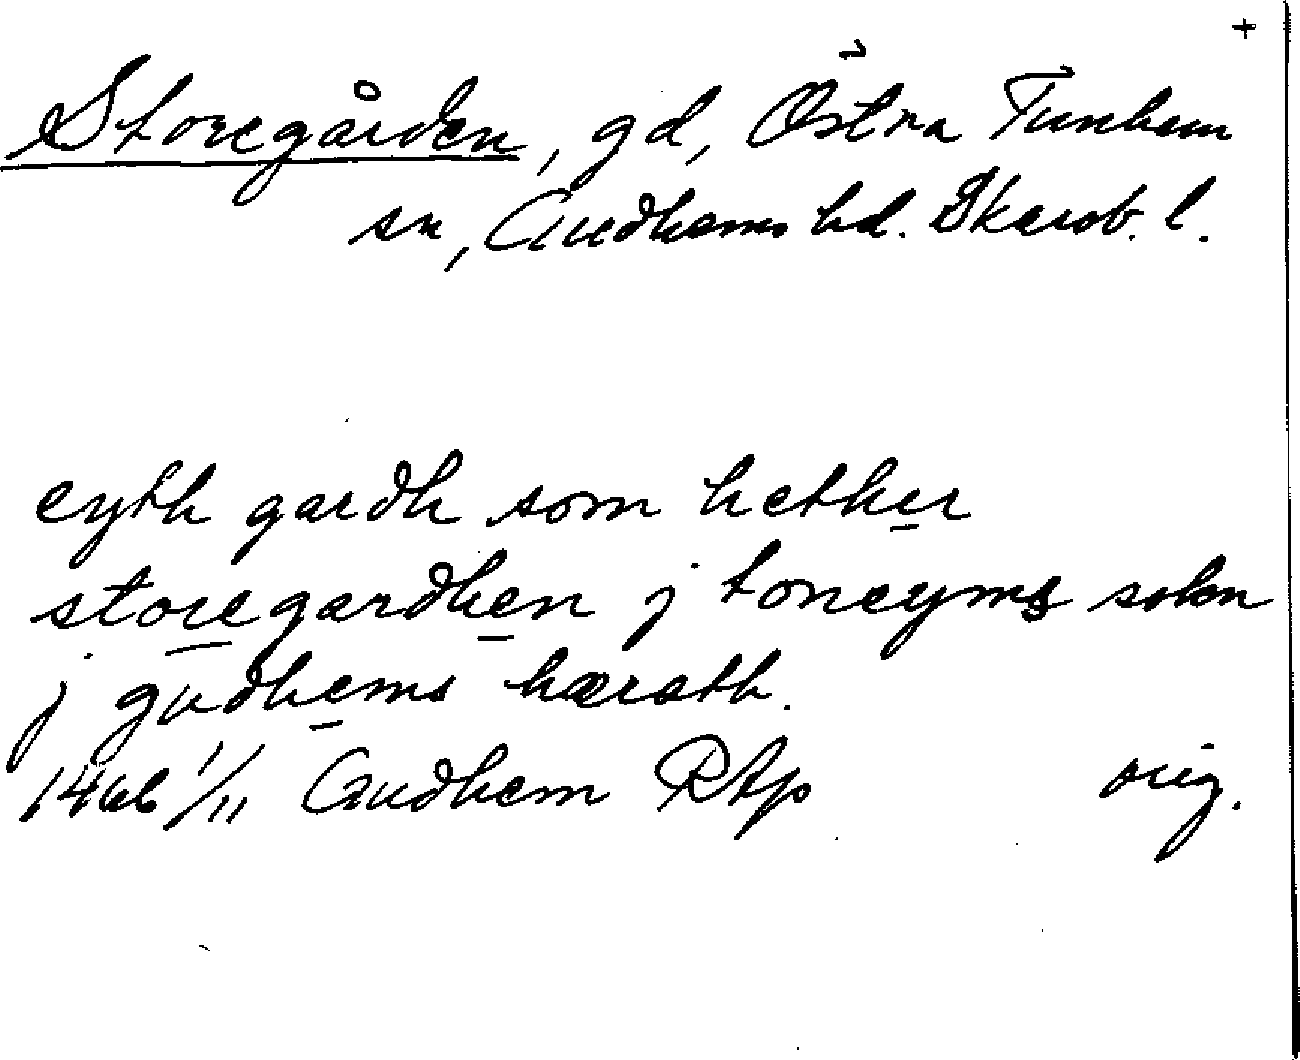 +
Storegården, gd, Östra Tunhem
sn, Gudhems hd. Skarab. l.
eyth gardh som hether
storegardhen j toneyms sokn
j gudhems hærath.
1466 1/11 Gudhem RAp orig.